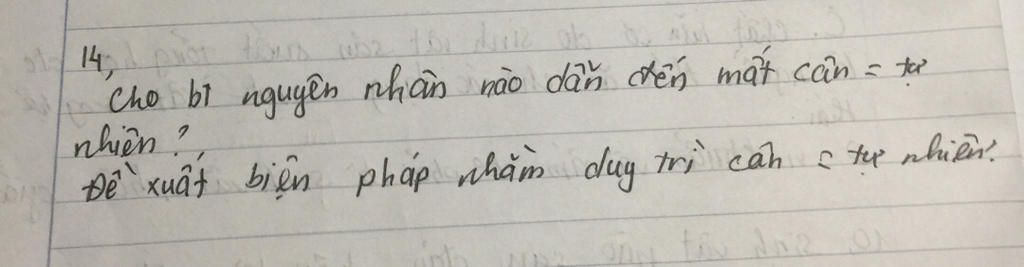 14,
Cho bt nguyên nhân nào dẫn đến mất cân = tự
nhiên?
Đề xuất biện pháp nhằm duy trì cân = tự nhiên?